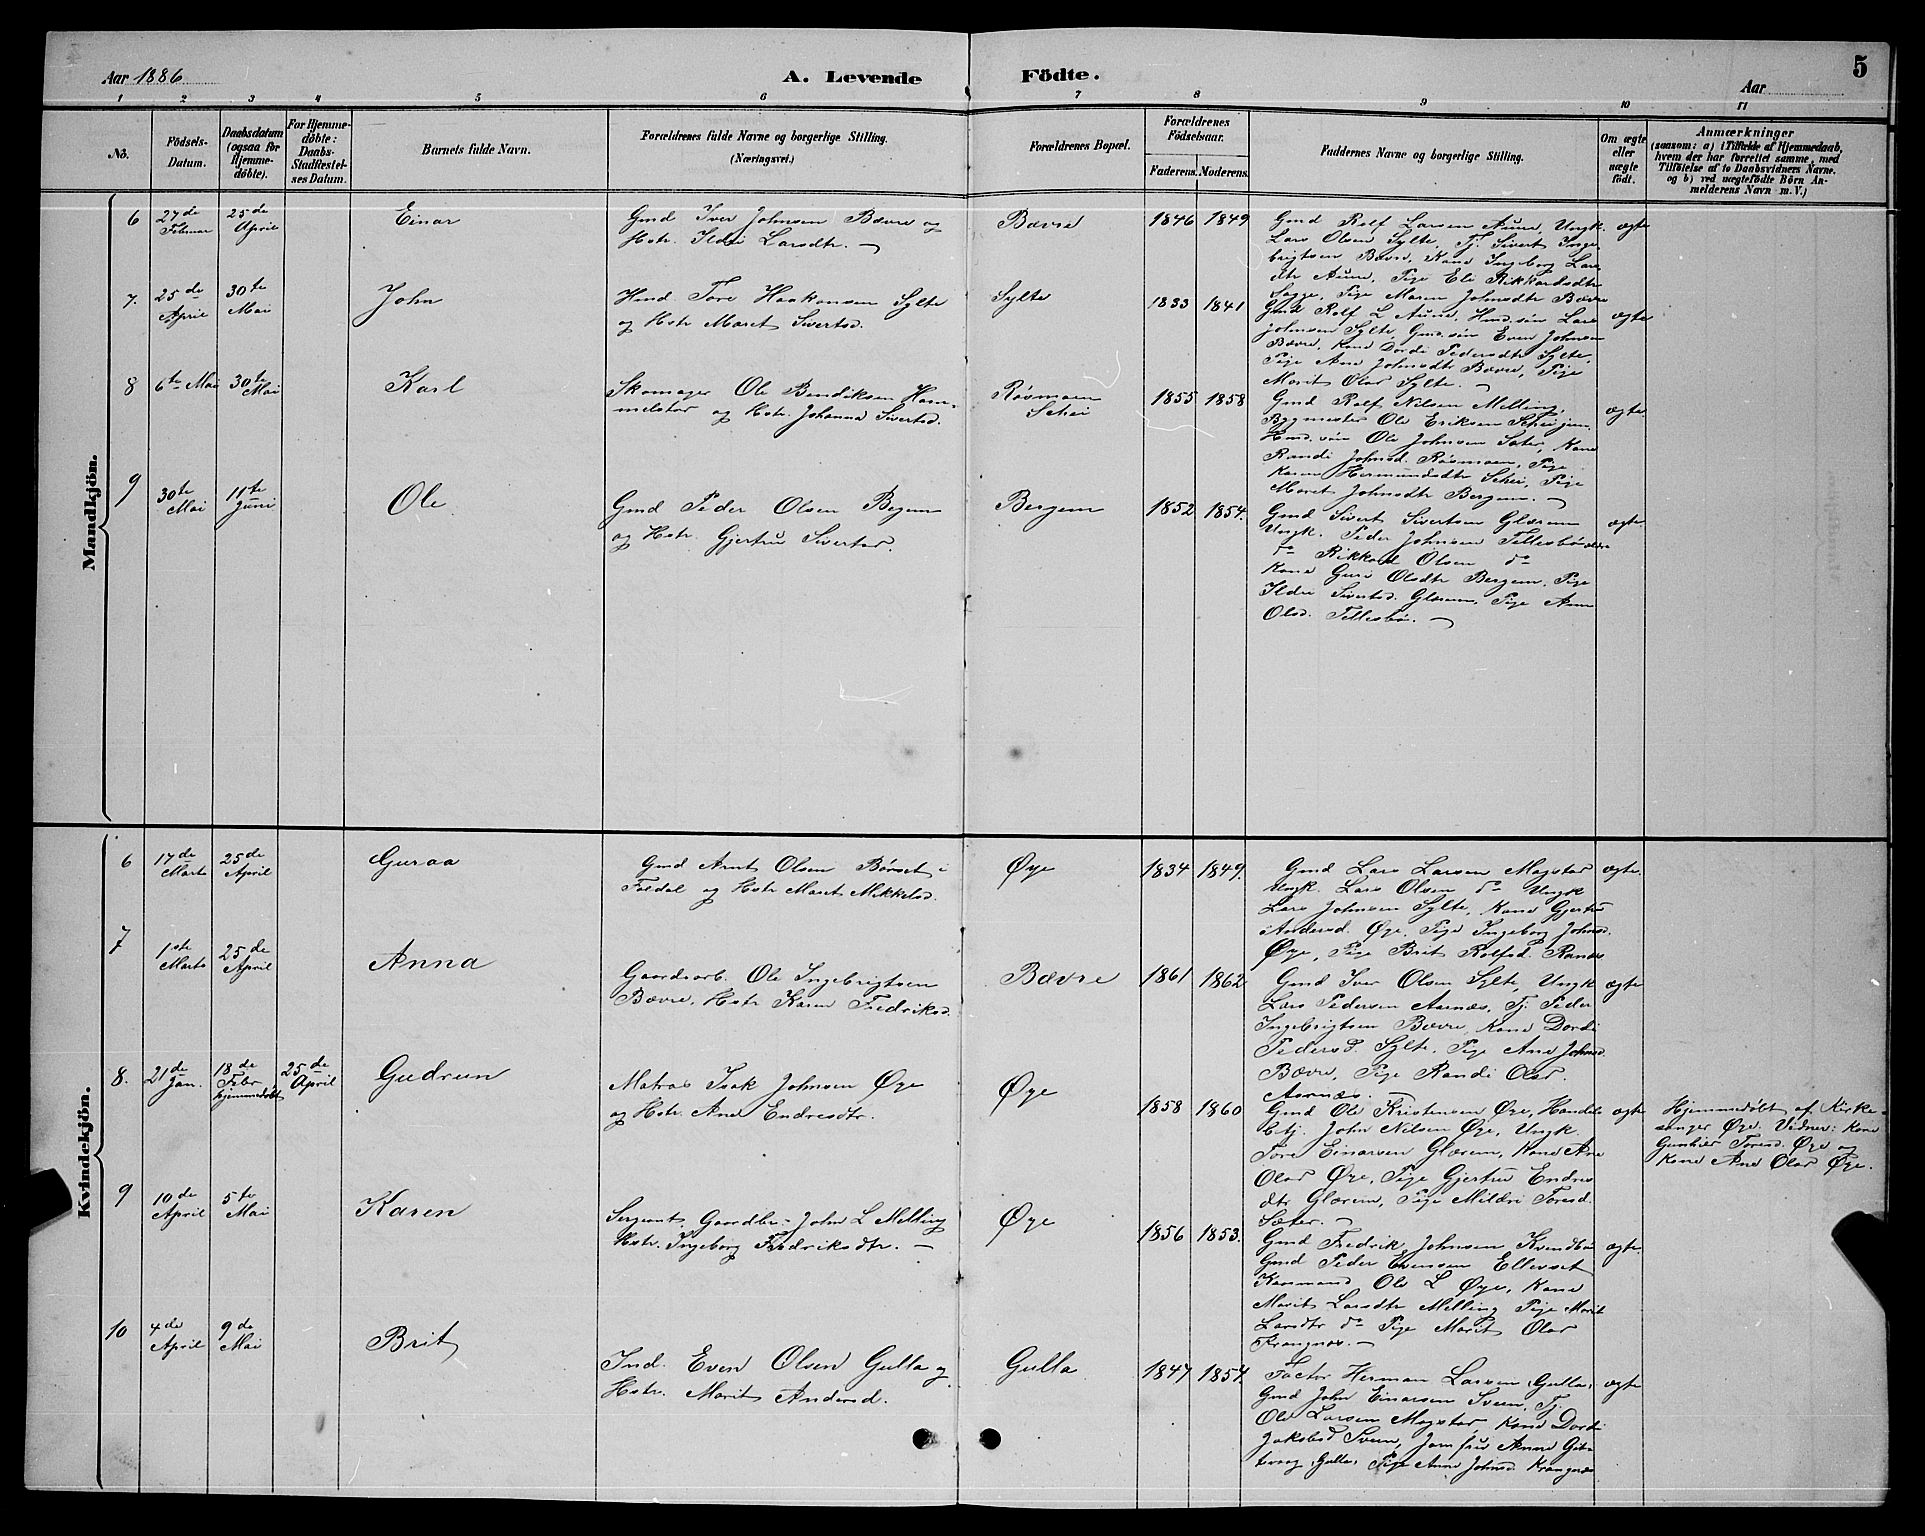 Aar 1886
A. Levende
Födte.
Aar
5
1 2 3 4 5 6 7 8 9 10 11
No.
Födsels-
Datum.
Daabsdatum
(ogsaa for
Hjemme-
döbte).
For Hjemme-
döbte:
Daabs-
Stadfæstel-
ses Datum.
Barnets fulde Navn.
Forældrenes fulde Navne og borgerlige Stilling.
(Næringsvei.)
Forældrenes Bopæl.
Forældrenes
Födselsaar.
Faderens. Moderens.
Faddernes Navne og borgerlige Stilling.
Om ægte
eller
uægte
födt.
Anmærkninger
(saasom: a) i Tilfælde af Hjemmedaab,
hvem der har forrettet samme, med
Tilföielse af to Daabsvidners Navne.
og b) ved uægtefödte Börn An-
melderens Navn m. V.)
Mandkjön.
6
27de
Februar
25de
April
Einar
Gmd Iver Johnsen Bævre og
Hstr. Ildri Larsdtr.
Bævre
1846 1849
Gmd Rolf Larsen Aune, Ungk.
Lars Olsen Sylte, Tj. Sivert Inge
brigtsen Bævre, Kone Ingeborg Lars
dtr Aune, Pige Eli Rikkardsdtr
Sagge, Pige Maren Johnsdtr Bævre
ægte
7.
25de
April
30te
Mai
John
Hmd. Tore Haakonsen Sylte
og Hstr Maret Sivertsd.
Sylte
1833 1841
Gmd Rolf L Aune, Hmd.sön Lars
Johnsen Sylte, Gmd.sön Even Johnsen
Bævre, Kone Dordi Pedersdtr Sylte,
Pige Ane Johnsdtr Bævre, Pige
Marit Olsd Sylte.
ægte
8
6te Mai
30te
Mai
Karl
Skomager Ole Bendiksen Ham-
melstør og Hstr. Johanna Sivertsd.
Røsmoen
Schei
1855 1858
Gmd Rolf Nilsen Melling,
Bygmester Ole Eriksen Schei jun.
Hmd.sön Ole Johnsen Sæter, Kone
Randi Johnsd. Røsmoen, Pige
Karen Hermundsdtr Schei, Pige
Maret Johnsdtr Bergem.
ægte.
9
30te
Mai
11te
Juni
Ole
Gmd Peder Olsen Begem
og Hstr. Gjertru Sivertsd.
Bergem
1852 1854.
Gmd Sivert Sivertsen Glærem
Ungk. Peder Johnsen Tellesbø
do Rikkard Olsen do
Kone Guri Olsdtr Bergem, Pige
Ildri Sivertsd. Glærem, Pige Ane
Olsd. Tellesbø.
ægte
Kvindekjön.
6
17de
Marts
25de
April
Guraa
Gmd Arnt Olsen Børset i
Foldal og Hstr Maret Mikkelsd.
Øye
1834 1849.
Gmd Lars Larsen Mogstad
Ungk. Lars Olsen do Ungk
Lars Johnsen Sylte, Kone Gjertru
Andersd. Øye, Pige Ingeborg Johnsd.
Øye, Pige Brit Rolfsd. Ranæs
ægte.
7
1ste
Marts
25de
April
Anna
Gaardarb. Ole Ingebrigtsen
Bævre, Hstr Karen Fredriksd.
Bævre
1861 1862
Gmd Iver Olsen Sylte, Ungk
Lars Pedersen Aarnæs, Tj. Peder
Ingebrigtsen Bævre, Kone Dordi
Pedersd. Sylte, Pige Ane Johnsd.
Bævre, Pige Randi Olsd.
Aarnæs.
ægte
8.
21de
Jan.
18de
Febr
hjemmedøbt
25de
April
Gudrun
Matros Isak Johnsen Øye
og Hstr. Ane Endresdtr.
Øye
1858 1860
Gmd Ole Kristensen Øye, Handels
betj. John Nilsen Øye, Ungk.
Tore Einarsen Glærem, Kone Ane
Olsd Øye, Pige Gjertru Endres
dtr Glærem, Pige Mildri Toresd
Sæter.
ægte
Hjemmedøbt af Kirke-
sanger Øye. Vidner: Kone
Gunhild Toresd. Øye og
Kone Ane Olsd Øye.
9
10de
April
5te
Mai
Karen
Sergeant, Gaardbr. John L Melling
Hstr. Ingeborg Fredriksdtr.
Øye
1856 1853.
Gmd Fredrik Johnsen Kvendbø
Gmd Peder Evensen Ellevset
Kaarmand Ole L Øye, Kone
Marit Larsdtr Melling Pige Marit
Larsdtr do Pige Marit Olsd
Krangnæs.
ægte.
10
4de
April
9de
Mai
Brit
Ind. Even Olsen Gulla og
Hstr. Marit Andersd.
Gulla
1847 1854.
Factor Herman Larsen, Gulla,
Gmd John Einarsen Sveen, Tj.
Ole Larsen Mogstad, Kone Dordi
Jakobsd Sveen, Jomfru Anne
Gulla, Pige Anne Johnsd. Krangnæs
ægte